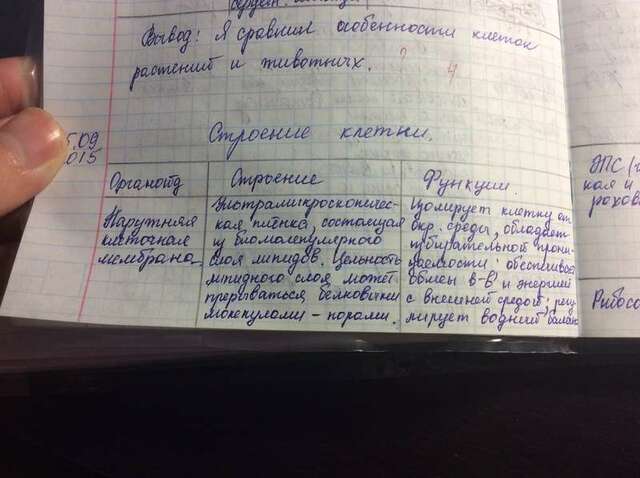 Вывод: Я сравнил особенности клеток
растений и животных. ? 4
5.09
015
Строение клетки.
Органоид
Строение
Функции.
Наружняя
клеточная
мембрана
Ультрамикроскопичес-
кая плёнка, состоящая
из биомолекулярного
слоя липидов. Цельность
липидного слоя может
прерываться белковыми
молекулами – порами.
Изолирует клетку от
окр. среды, обладает
избирательной прони-
цаемостью: обеспечивает
обмен в-в и энергией
с внешней средой; регу
лирует водный баланс
ЭПС (г
кая и
рохова
Рибосо